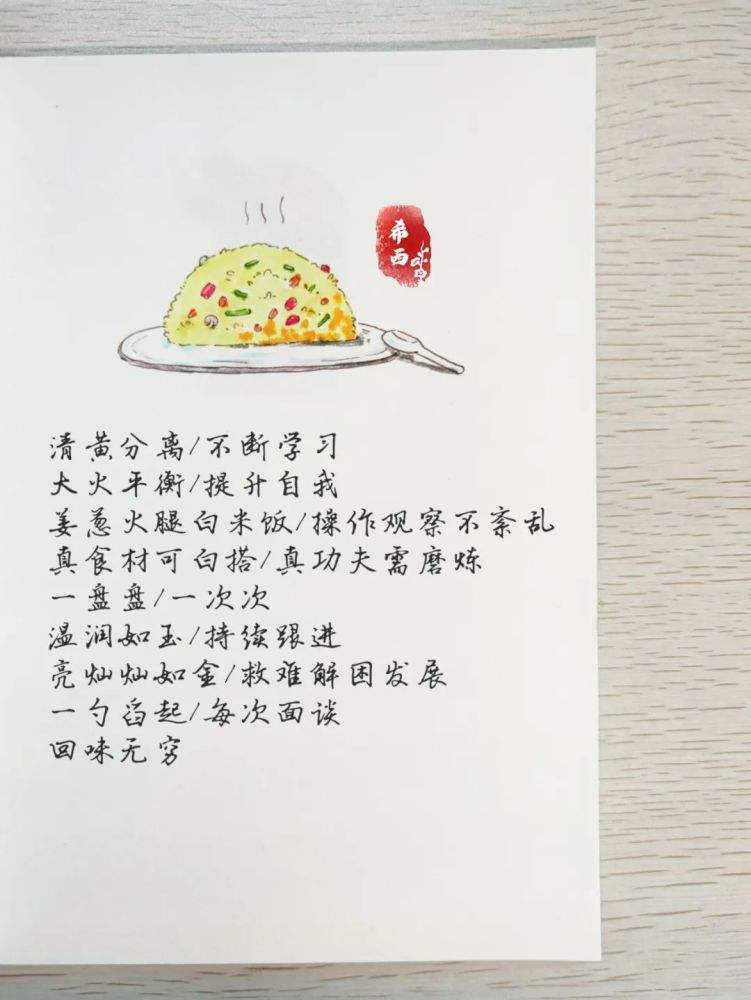 希西
清黄分离/不断学习
大火平衡/提升自我
姜葱火腿白米饭/操作观察不紊乱
真食材可白搭/真功夫需磨炼
一盘盘/一次次
温润如玉/持续跟进
亮灿灿如金/救难解困发展
一勺舀起/每次面谈
回味无穷